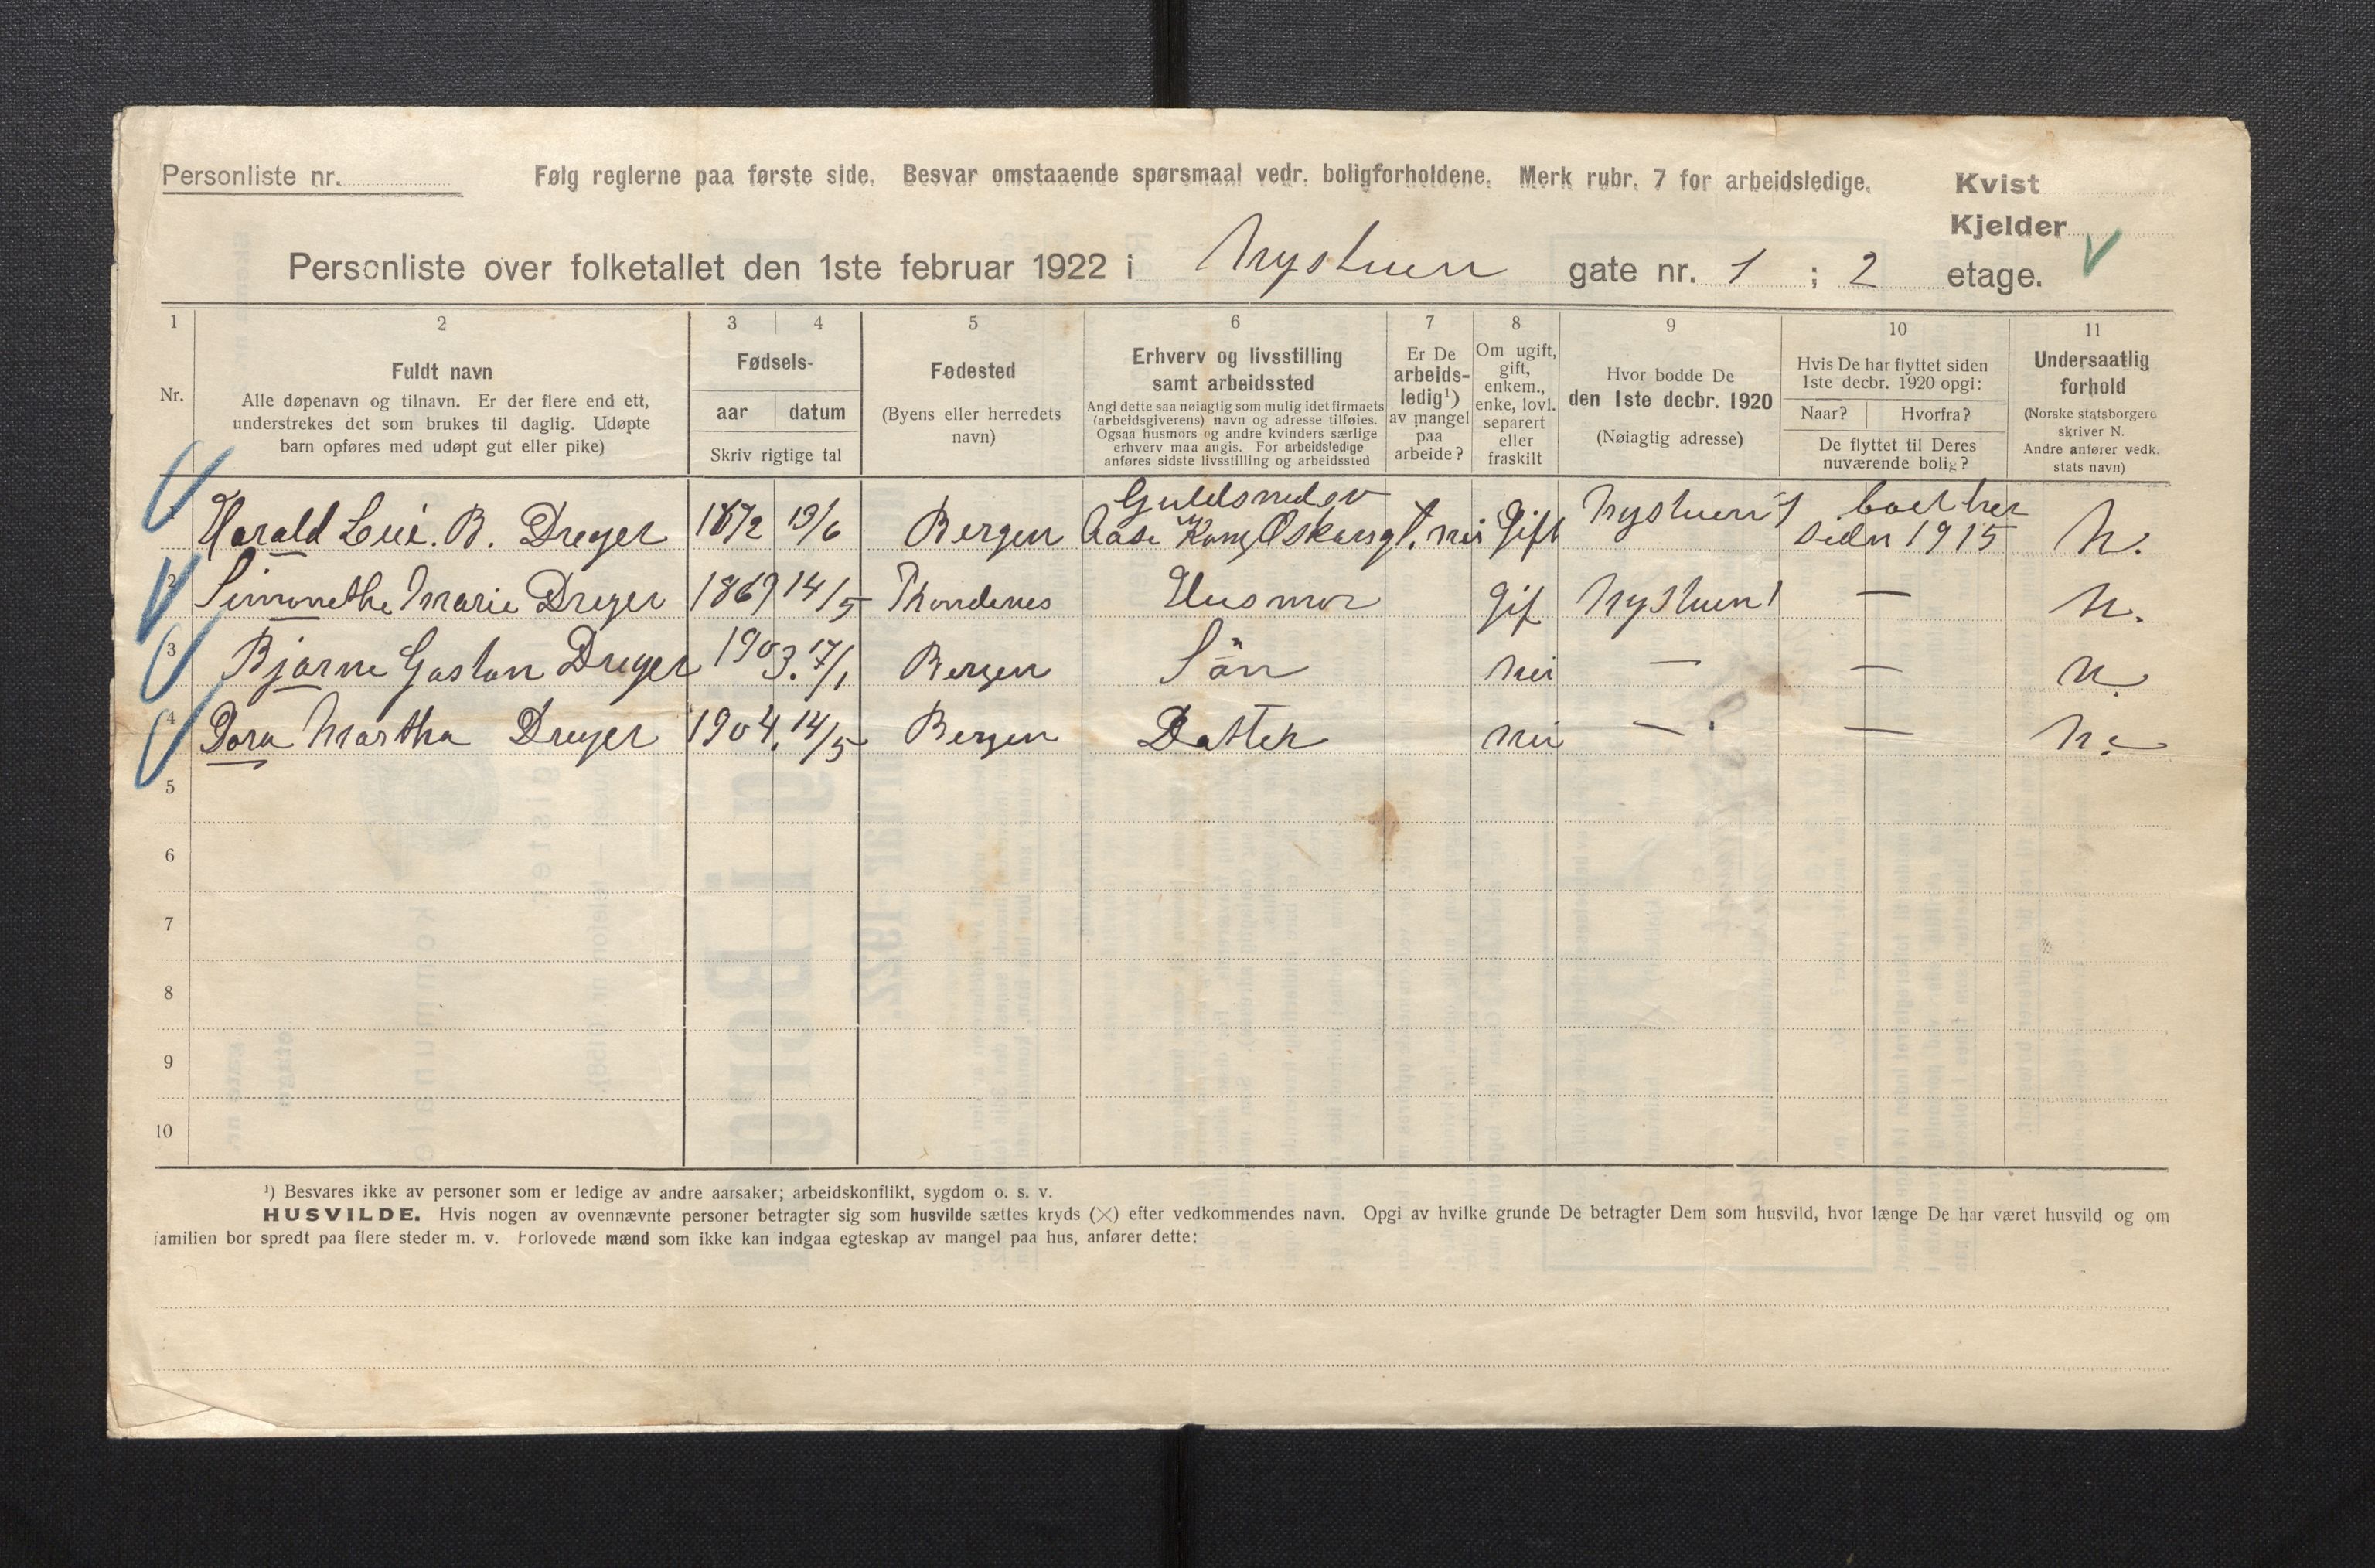 Personliste nr.
Følg reglerne paa første side. Besvar omstaaende spørsmaal vedr. boligforholdene. Merk rubr. 7 for arbeidsledige.
Kvist
Kjelder
Personliste over folketallet den 1ste februar 1922 i Nystuen gate nr. 1 ; 2 etage.
1 2 3 4 5 6 7 8 9 10 11
Nr.
Fuldt navn
Alle døpenavn og tilnavn. Er der flere end ett,
understrekes det som brukes til daglig. Udøpte
barn opføres med udøpt gut eller pike)
Fødsels-
aar datum
Skriv rigtige tal
Fødested
(Byens eller herredets
navn)
Erhverv og livsstilling
samt arbeidssted
Angi dette saa nøiagtig som mulig idet firmaets
(arbeidsgiverens) navn og adresse tilføies.
Ogsaa husmors og andre kvinders særlige
erhverv maa angis. For arbeidsledige
anføres sidste livsstilling og arbeidssted
Er De
arbeids-
ledig¹)
av mangel
paa
arbeide?
Om ugift,
gift,
enkem.,
enke, lovl.
separert
eller
fraskilt
Hvor bodde De
den 1ste decbr. 1920
(Nøiagtig adresse)
Hvis De har flyttet siden
1ste decbr. 1920 opgi:
Naar? Hvorfra?
De flyttet til Deres
nuværende bolig?
Undersaatlig
forhold
(Norske statsborgere
skriver N.
Andre anfører vedk.
stats navn)
Guldsmedsv
Harald B. Dreyer 1872 19/6 Bergen Aase Kong Oskarsgt. nei Gift Nystuen 1 boet her
siden 1915 N.
2 Simonethe Marie Dreyer 1869 14/5 Throndenes Husmor gif Nystuen 1 — N.
3 Bjarne Gastan Dreyer 1903. 17/1 Bergen Sön nei — — N.
4 Dora Martha Dreyer 1904. 14/5 Bergen Datter nei — — N.
5
6
7
8
9
10
¹) Besvares ikke av personer som er ledige av andre aarsaker; arbeidskonflikt, sygdom o. s. v.
HUSVILDE. Hvis nogen av ovennævnte personer betragter sig som husvilde sættes kryds (×) efter vedkommendes navn. Opgi av hvilke grunde De betragter Dem som husvild, hvor længe De har været husvild og om
familien bor spredt paa flere steder m. v. Forlovede mænd som ikke kan indgaa egteskap av mangel paa hus, anfører dette: